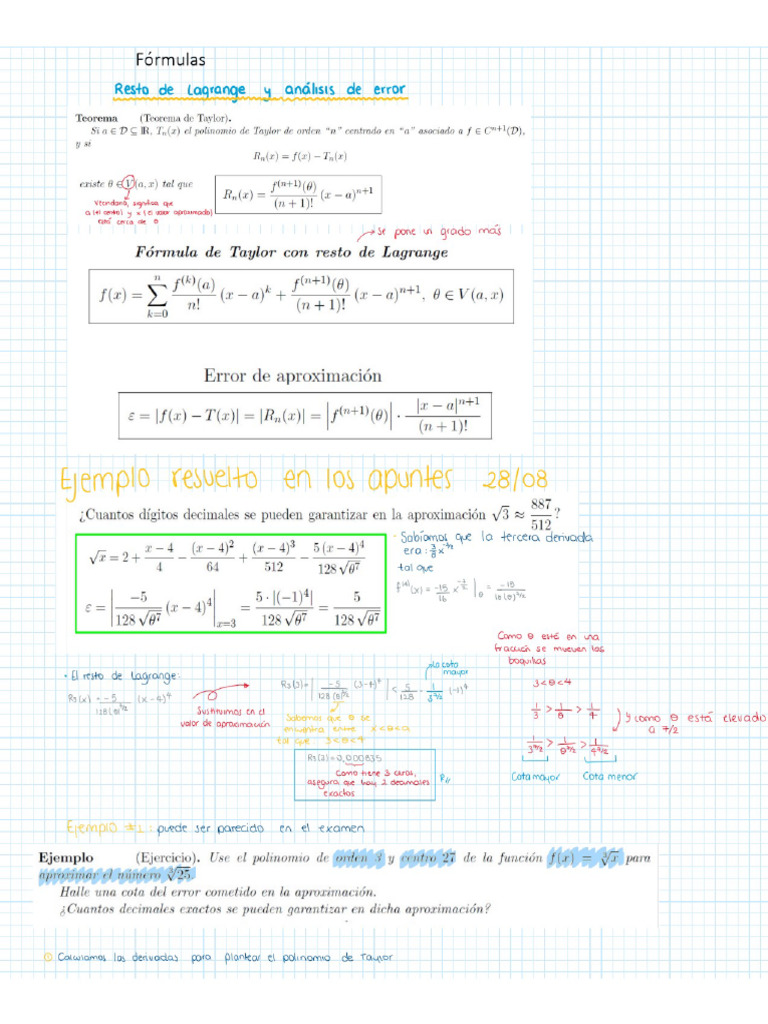 Fórmulas
Resto de Lagrange y análisis de error
Teorema (Teorema de Taylor).
Si a ∈ D ⊆ ℝ, Tₙ(x) el polinomio de Taylor de orden "n" centrado en "a" asociado a f ∈ Cⁿ⁺¹(D),
y si
Rₙ(x) = f(x) − Tₙ(x)
existe θ ∈ V(a, x) tal que
Rₙ(x) = f⁽ⁿ⁺¹⁾(θ)/(n + 1)! (x − a)ⁿ⁺¹
significa que
a (el centro) y x (el valor aproximado)
está cerca de θ
se pone un grado más
Fórmula de Taylor con resto de Lagrange
f(x) = ∑ₖ₌₀ⁿ f⁽ᵏ⁾(a)/n! (x − a)ᵏ + f⁽ⁿ⁺¹⁾(θ)/(n + 1)! (x − a)ⁿ⁺¹, θ ∈ V(a, x)
Error de aproximación
ε = |f(x) − T(x)| = |Rₙ(x)| = |f⁽ⁿ⁺¹⁾(θ)| · |x − a|ⁿ⁺¹/(n + 1)!
Ejemplo resuelto en los apuntes 28/08
¿Cuantos dígitos decimales se pueden garantizar en la aproximación √3 ≈ 887/512?
√x = 2 + (x − 4)/4 − (x − 4)²/64 + (x − 4)³/512 − 5(x − 4)⁴/(128 √θ⁷)
ε = |−5/(128 √θ⁷) (x − 4)⁴|ₓ₌₃ = 5 · |(−1)⁴|/(128 √θ⁷) = 5/(128 √θ⁷)
· Sabíamos que la tercera derivada
era: 3/8 x
tal que
Como θ está en una
fracción se mueven las
boquillas
3 < θ < 4
1/3 > 1/θ > 1/4
y como θ está elevado
a 7/2
1/3^(7/2) > 1/θ^(7/2) > 1/4^(7/2)
Cota mayor Cota menor
· El resto de Lagrange:
R₃(x) = −5/(128(θ)^(7/2)) (x−4)⁴
Sustituimos en el
valor de aproximación
R₃(3) = | −5/(128(θ)^(7/2)) (3−4)⁴ | < 5/128 · 1/3^(7/2) (−1)⁴
la cota
mayor
Sabemos que θ se
encuentra entre x < θ < a
tal que 3 < θ < 4
R₃(3) = 0,000835
Como tiene 3 ceros,
asegura que hay 2 decimales
exactos
R//
Ejemplo #1: puede ser parecido en el examen
Ejemplo (Ejercicio). Use el polinomio de orden 3 y centro 27 de la función f(x) = ∛x para
aproximar el número ∛25.
Halle una cota del error cometido en la aproximación.
¿Cuantos decimales exactos se pueden garantizar en dicha aproximación?
① Calculamos las derivadas para plantear el polinomio de Taylor